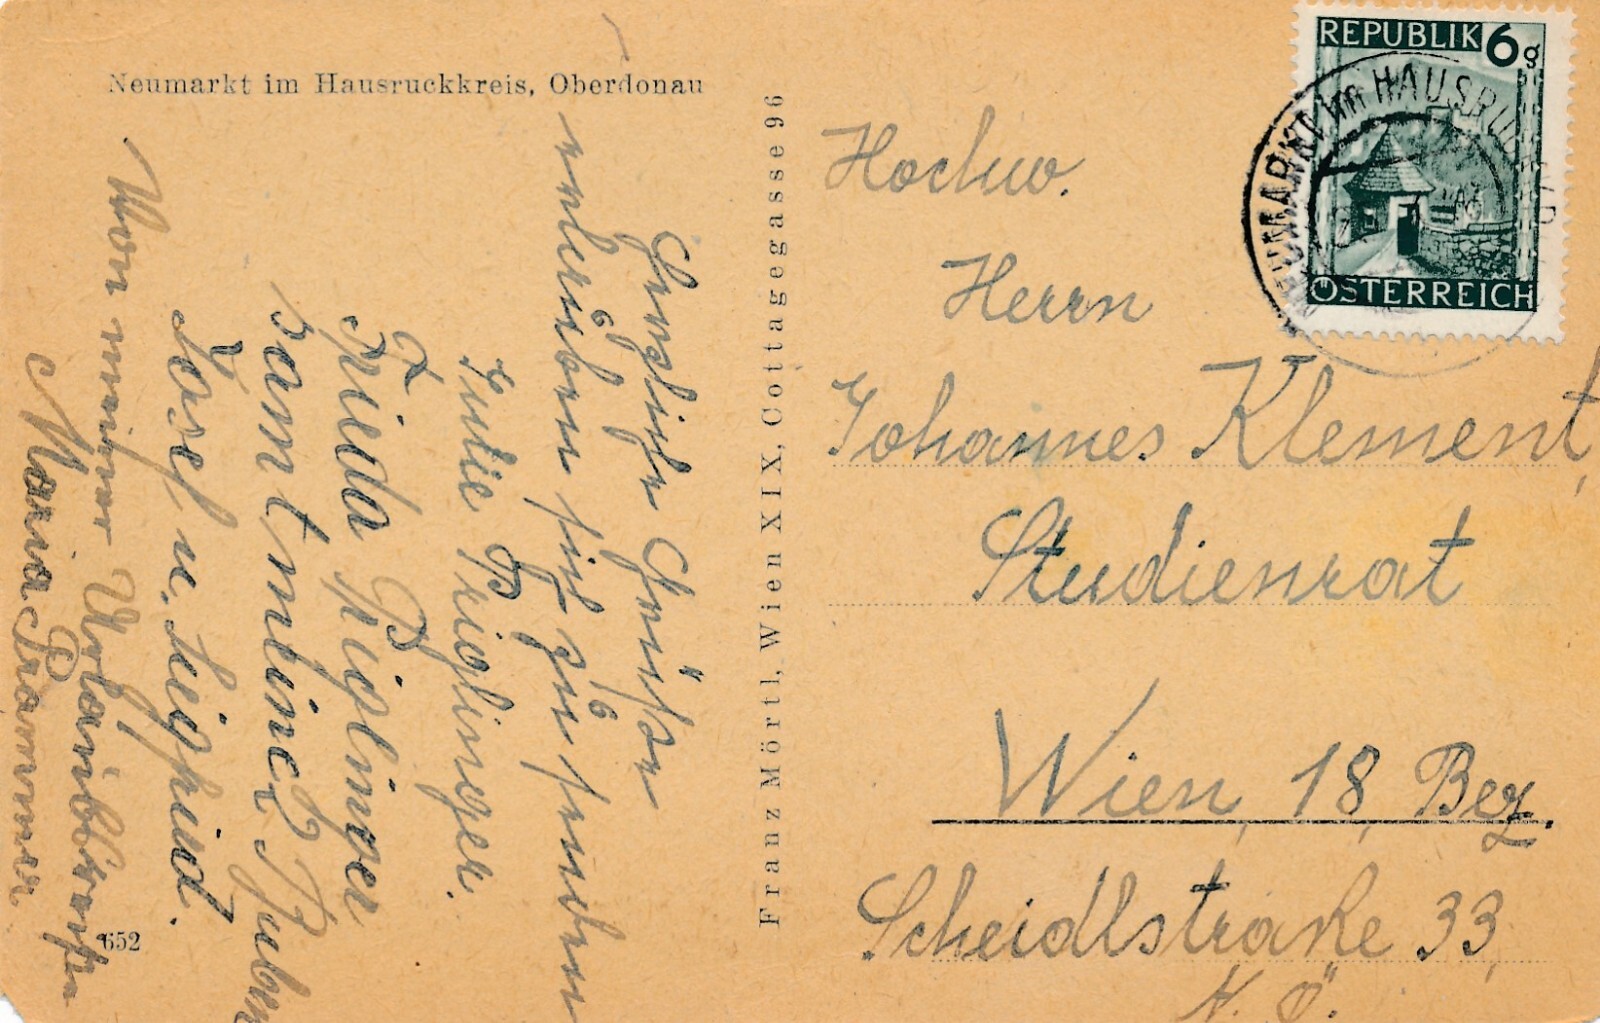 Neumarkt im Hausruckkreis, Oberdonau
Herzliche Grüße
erlauben sich zu senden
Julie Priglinger.
Frieda Priglinger
samt meinen 2 Buben
Josef u. Siegfried.
Von meiner
Maria Prammer
652
Franz Mörtl, Wien XIX, Cottagegasse 96
REPUBLIK 6g
ÖSTERREICH
NEUMARKT im HAUSRUCKKREIS
Hochw.
Herrn
Johannes Klement,
Studienrat
Wien, 18, Bez.
Scheidlstraße 33,
N. Ö.